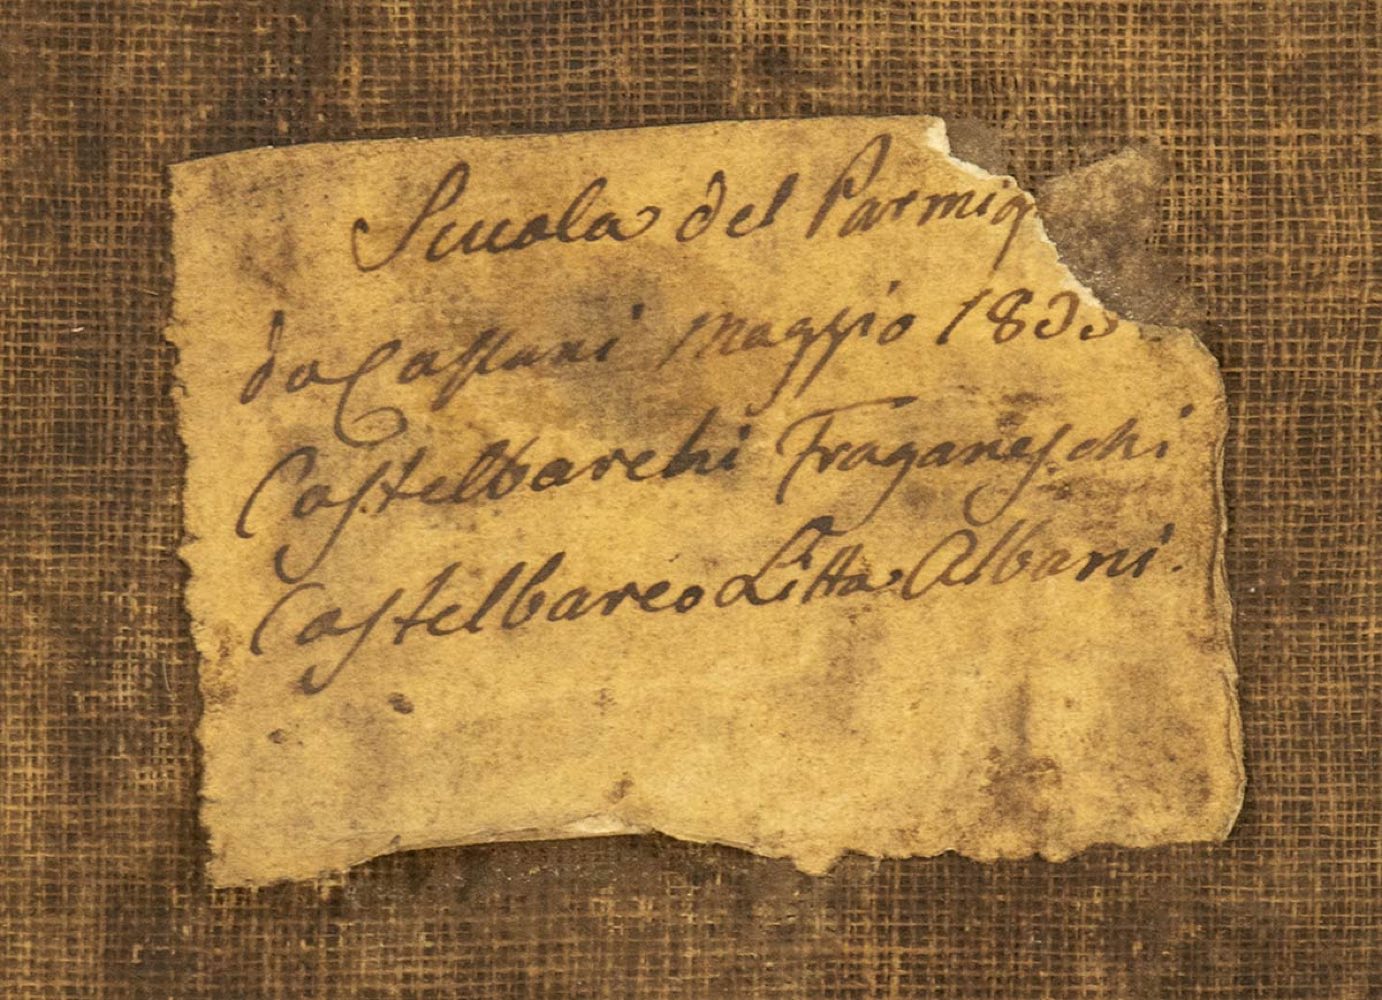 Scuola del Parmig
da Castani Maggio 1833
Castelbarchi Fraganeschi
Castelbarco Litta Albani.